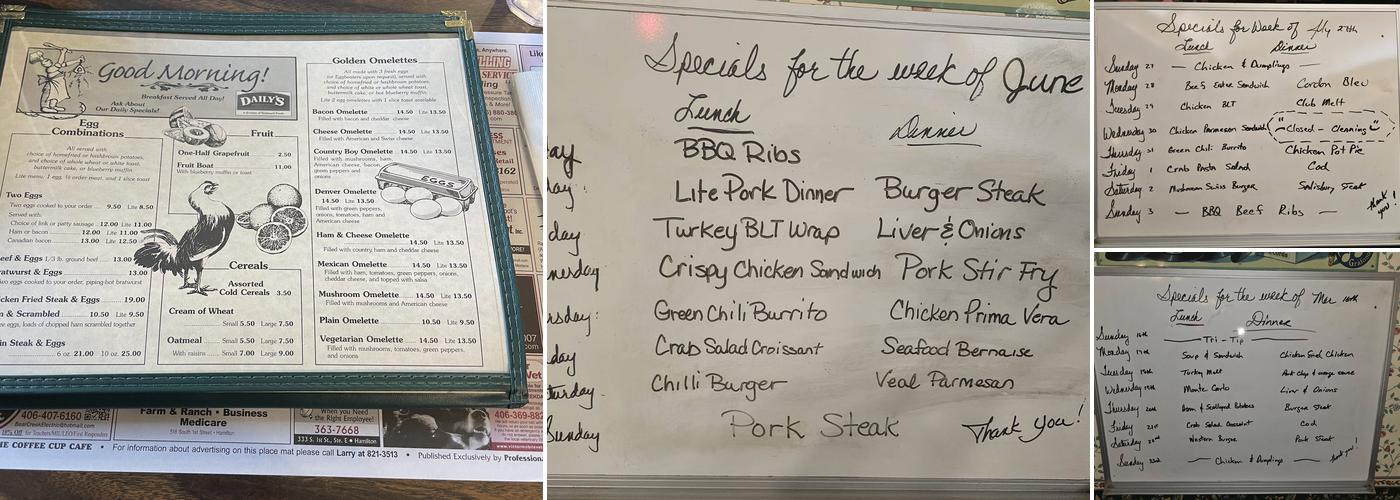 Good Morning!
Breakfast Served All Day!
Ask About
Our Daily Specials!
DAILY'S
Egg
Combinations
All served with
choice of homefried or hashbrown potatoes,
choice of whole wheat or white toast,
buttermilk cake, or blueberry muffin.
Lite menu, 1 egg, ½ order meat, and 1 slice toast
Two Eggs
Two eggs cooked to your order 9.50 Lite 8.50
Served with:
Choice of link or patty sausage 12.00 Lite 11.00
Ham or bacon 12.00 Lite 11.00
Canadian bacon 13.00 Lite 12.50
eef & Eggs 1/3 lb. ground beef 13.00
atwurst & Eggs 13.00
wo eggs cooked to your order, piping-hot bratwurst
cken Fried Steak & Eggs 19.00
n & Scrambled 10.50 Lite 9.50
ee eggs, loads of chopped ham scrambled together
in Steak & Eggs
6 oz. 21.00 10 oz. 25.00
Fruit
One-Half Grapefruit 2.50
Fruit Boat 11.00
With blueberry muffin or toast
Cereals
Assorted
Cold Cereals 3.50
Cream of Wheat
Small 5.50 Large 7.50
Oatmeal Small 5.50 Large 7.50
With raisins Small 7.00 Large 9.00
Golden Omelettes
All made with 3 fresh eggs
(or Eggbeaters upon request), served with
choice of homefried or hashbrown potatoes,
choice of whole wheat or white toast,
buttermilk cake, or blueberry muffin.
Lite 2 egg omelettes with 1 slice toast available
Bacon Omelette 14.50 Lite 13.50
Filled with bacon and cheddar cheese
Cheese Omelette 14.50 Lite 13.50
Filled with American and Swiss cheese
Country Boy Omelette 14.50 Lite 13.50
Filled with mushrooms, ham,
American cheese, bacon,
green peppers and
onions
EGGS
Denver Omelette
14.50 Lite 13.50
Filled with green peppers,
onions, tomatoes, ham and
American cheese
Ham & Cheese Omelette
14.50 Lite 13.50
Filled with country ham and cheddar cheese
Mexican Omelette 14.50 Lite 13.50
Filled with ham, tomatoes, green peppers, onions,
cheddar cheese, and topped with salsa
Mushroom Omelette 14.50 Lite 13.50
Filled with mushrooms and American cheese
Plain Omelette 10.50 Lite 9.50
Vegetarian Omelette 14.50 Lite 13.50
Filled with mushrooms, tomatoes, green peppers,
and onions
406-407-6160
BearCreekElectric@hotmail.com
10% Off for Teachers/MIL/LEO/First Responders
Farm & Ranch • Business
Medicare
518 South 1st Street • Hamilton
When you Need
the Right Employee!
363-7668
333 S. 1st St., Ste. E • Hamilton
406-369-88
HE COFFEE CUP CAFE • For information about advertising on this place mat please call Larry at 821-3513 • Published Exclusively by Profession
Specials for the week of June
Lunch
Dinner
ay BBQ Ribs
day: Lite Pork Dinner Burger Steak
day Turkey BLT Wrap Liver & Onions
nesday Crispy Chicken Sandwich Pork Stir Fry
rsday: Green Chili Burrito Chicken Prima Vera
day Crab Salad Croissant Seafood Bernaise
turday: Chilli Burger Veal Parmesan
Sunday Pork Steak
Thank You!
Specials for Week of July 27th
Lunch Dinner
Sunday 27 — Chicken & Dumplings —
Monday 28 Beef Enter Sandwich Cordon Bleu
Tuesday 29 Chicken BLT Club Melt
Wednesday 30 Chicken Parmesan Sandwich "Closed - Cleaning"
Thursday 31 Green Chili Burrito Chicken Pot Pie
Friday 1 Crab Pasta Salad Cod
Saturday 2 Mushroom Swiss Burger Salisbury Steak
Sunday 3 — BBQ Beef Ribs —
thank you!
Specials for the week of Mar 16th
Lunch Dinner
Sunday 16th — Tri-Tip —
Monday 17th Soup & Sandwich Chicken Fried Chicken
Tuesday 18th Turkey Melt Pork Chop & orange sauce
Wednesday 19th Monte Carlo Liver & Onions
Thursday 20th Ham & Scalloped Potatoes Burger Steak
Friday 21st Crab Salad Croissant Cod
Saturday 22nd Western Burger Pork Steak
Sunday 23rd — Chicken & Dumplings —
thank you!